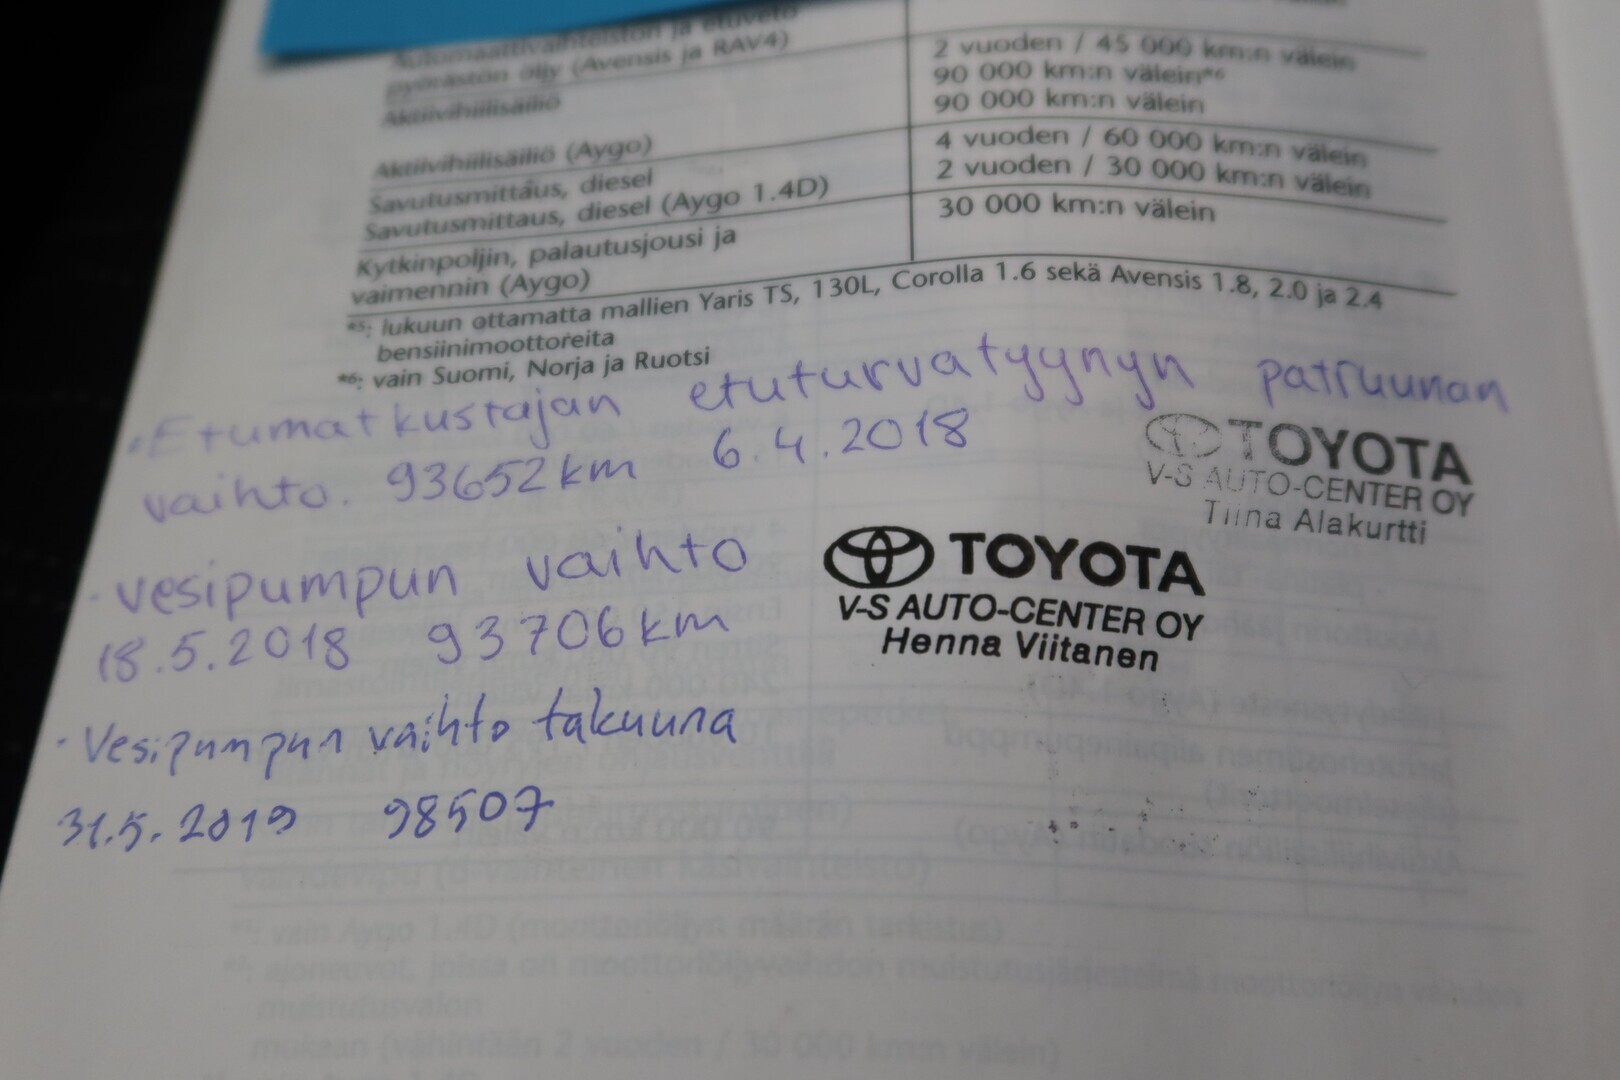 Automaattivaihteiston ja etuveto-
pyörästön öljy (Avensis ja RAV4)
2 vuoden / 45 000 km:n välein
Aktiivihiilisäiliö
90 000 km:n välein*6
90 000 km:n välein
Aktiivihiilisäiliö (Aygo)
Savutusmittaus, diesel
4 vuoden / 60 000 km:n välein
Savutusmittaus, diesel (Aygo 1.4D)
2 vuoden / 30 000 km:n välein
Kytkinpoljin, palautusjousi ja
vaimennin (Aygo)
30 000 km:n välein
*5: lukuun ottamatta mallien Yaris TS, 130L, Corolla 1.6 sekä Avensis 1.8, 2.0 ja 2.4
bensiinimoottoreita
*6: vain Suomi, Norja ja Ruotsi
• Etumatkustajan etuturvatyynyn patruunan
vaihto. 93652km 6.4.2018
TOYOTA
V-S AUTO-CENTER OY
Tiina Alakurtti
• vesipumpun vaihto
18.5.2018 93706km
TOYOTA
V-S AUTO-CENTER OY
Henna Viitanen
• Vesipumpun vaihto takuuna
31.5.2019 98507